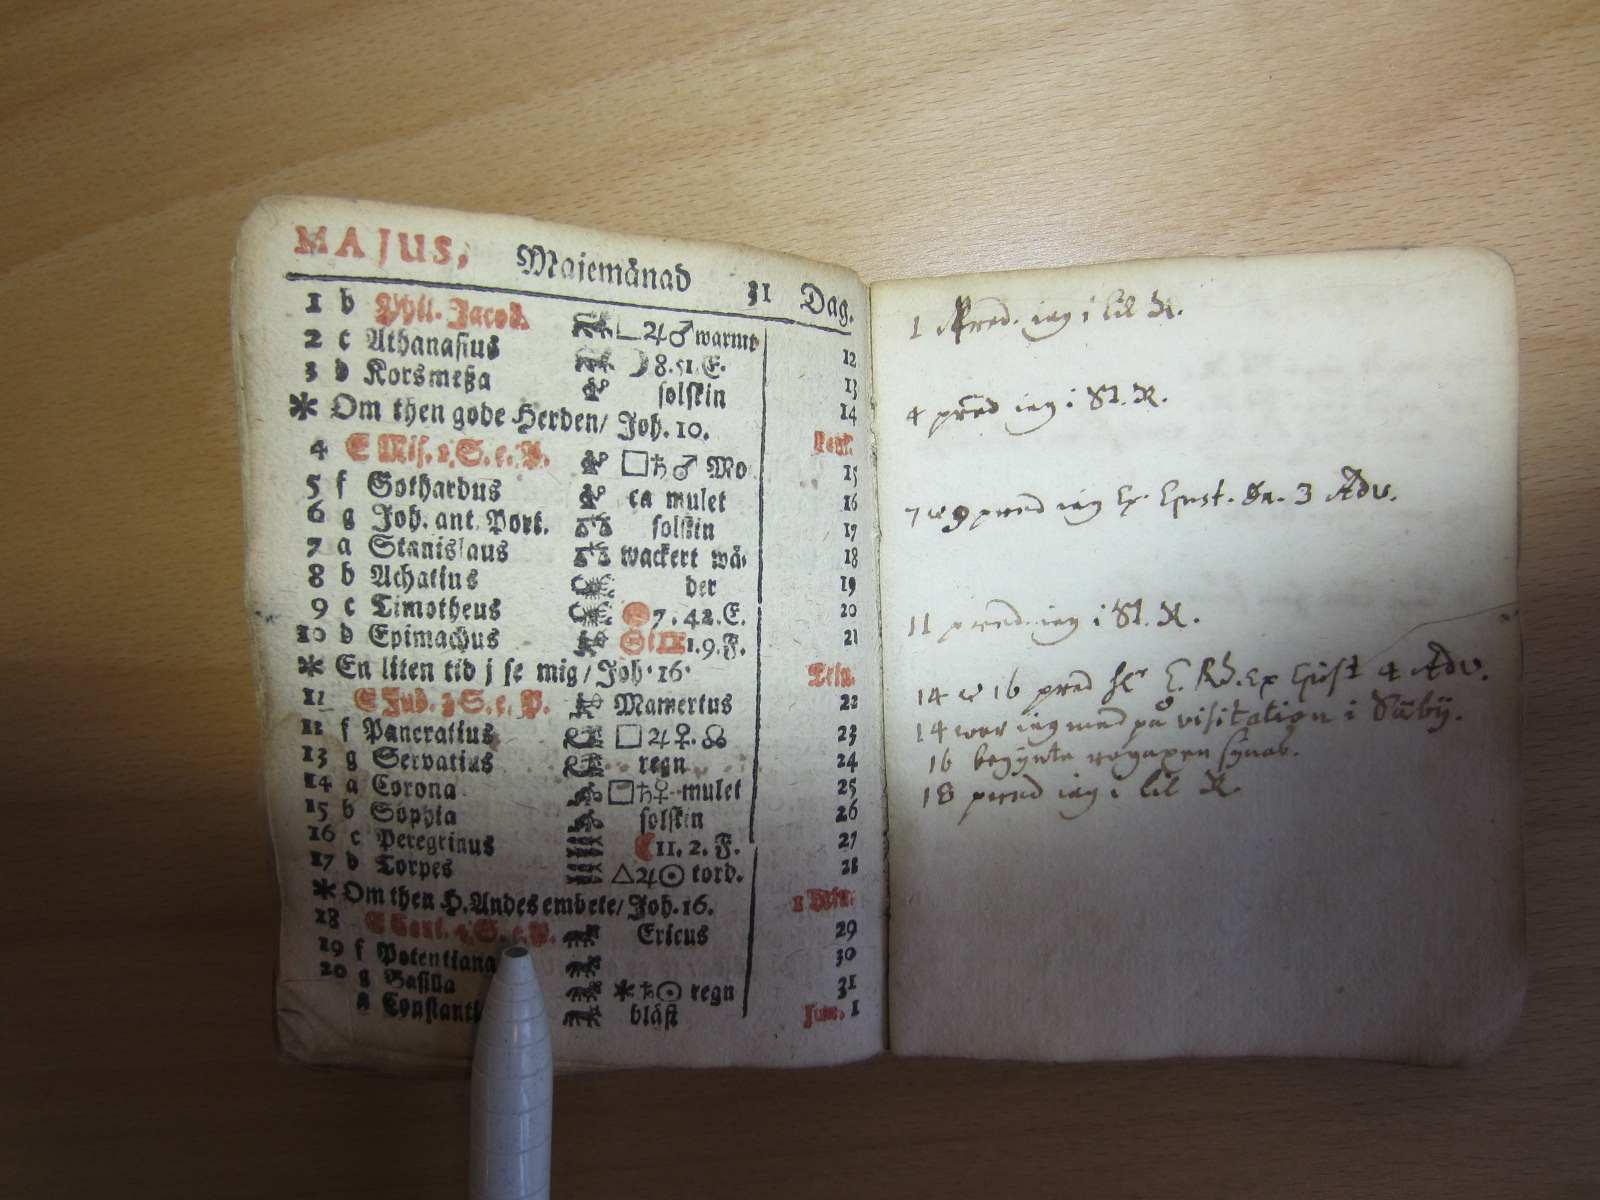 MAJUS, Majemånad 31 Dag.
1 b Phil. Jacob. □ ♃ ♂ warmt
2 c Athanasius ☽ 8.51.E. 12
3 d Korsmeßa solskin 13
* Om then gode Herden/ Joh. 10. 14
4 E Mis. 2. S. e. P. □ ♄ ♂ Mo 15
5 f Gothardus ca mulet 16
6 g Joh. ant. Port. solskin 17
7 a Stanislaus wackert wä- 18
8 b Achatius der 19
9 c Timotheus 7. 42. E. 20
10 d Epimachus 1.9.F. 21
* En liten tid j se mig/ Joh. 16.
11 E Jub. 3 S. e. P. Mamertus 22
12 f Pancratius □ ♃ ♀ ☊ 23
13 g Servatius regn 24
14 a Corona □ ♄ ♀ mulet 25
15 b Sophia solskin 26
16 c Peregrinus ☾ 11. 2. F. 27
17 d Torpes △ ♃ ☉ tord. 28
* Om then H. Andes embete/ Joh. 16.
18 E Cant. 4 S. e. P. Ericus 29
19 f Potentiana 30
20 g Basilla * ♄ ☉ regn 31
a Constanti blåst Jun. 1
1 Pred. iag i lil K.
4 pred iag i St. K.
7 9 pred iag 3 Adv.
11 pred. iag i St. K.
14 16 pred 4 Adv.
14 war iag med på visitation i Säby.
16 begynte
18 pred iag i lil K.